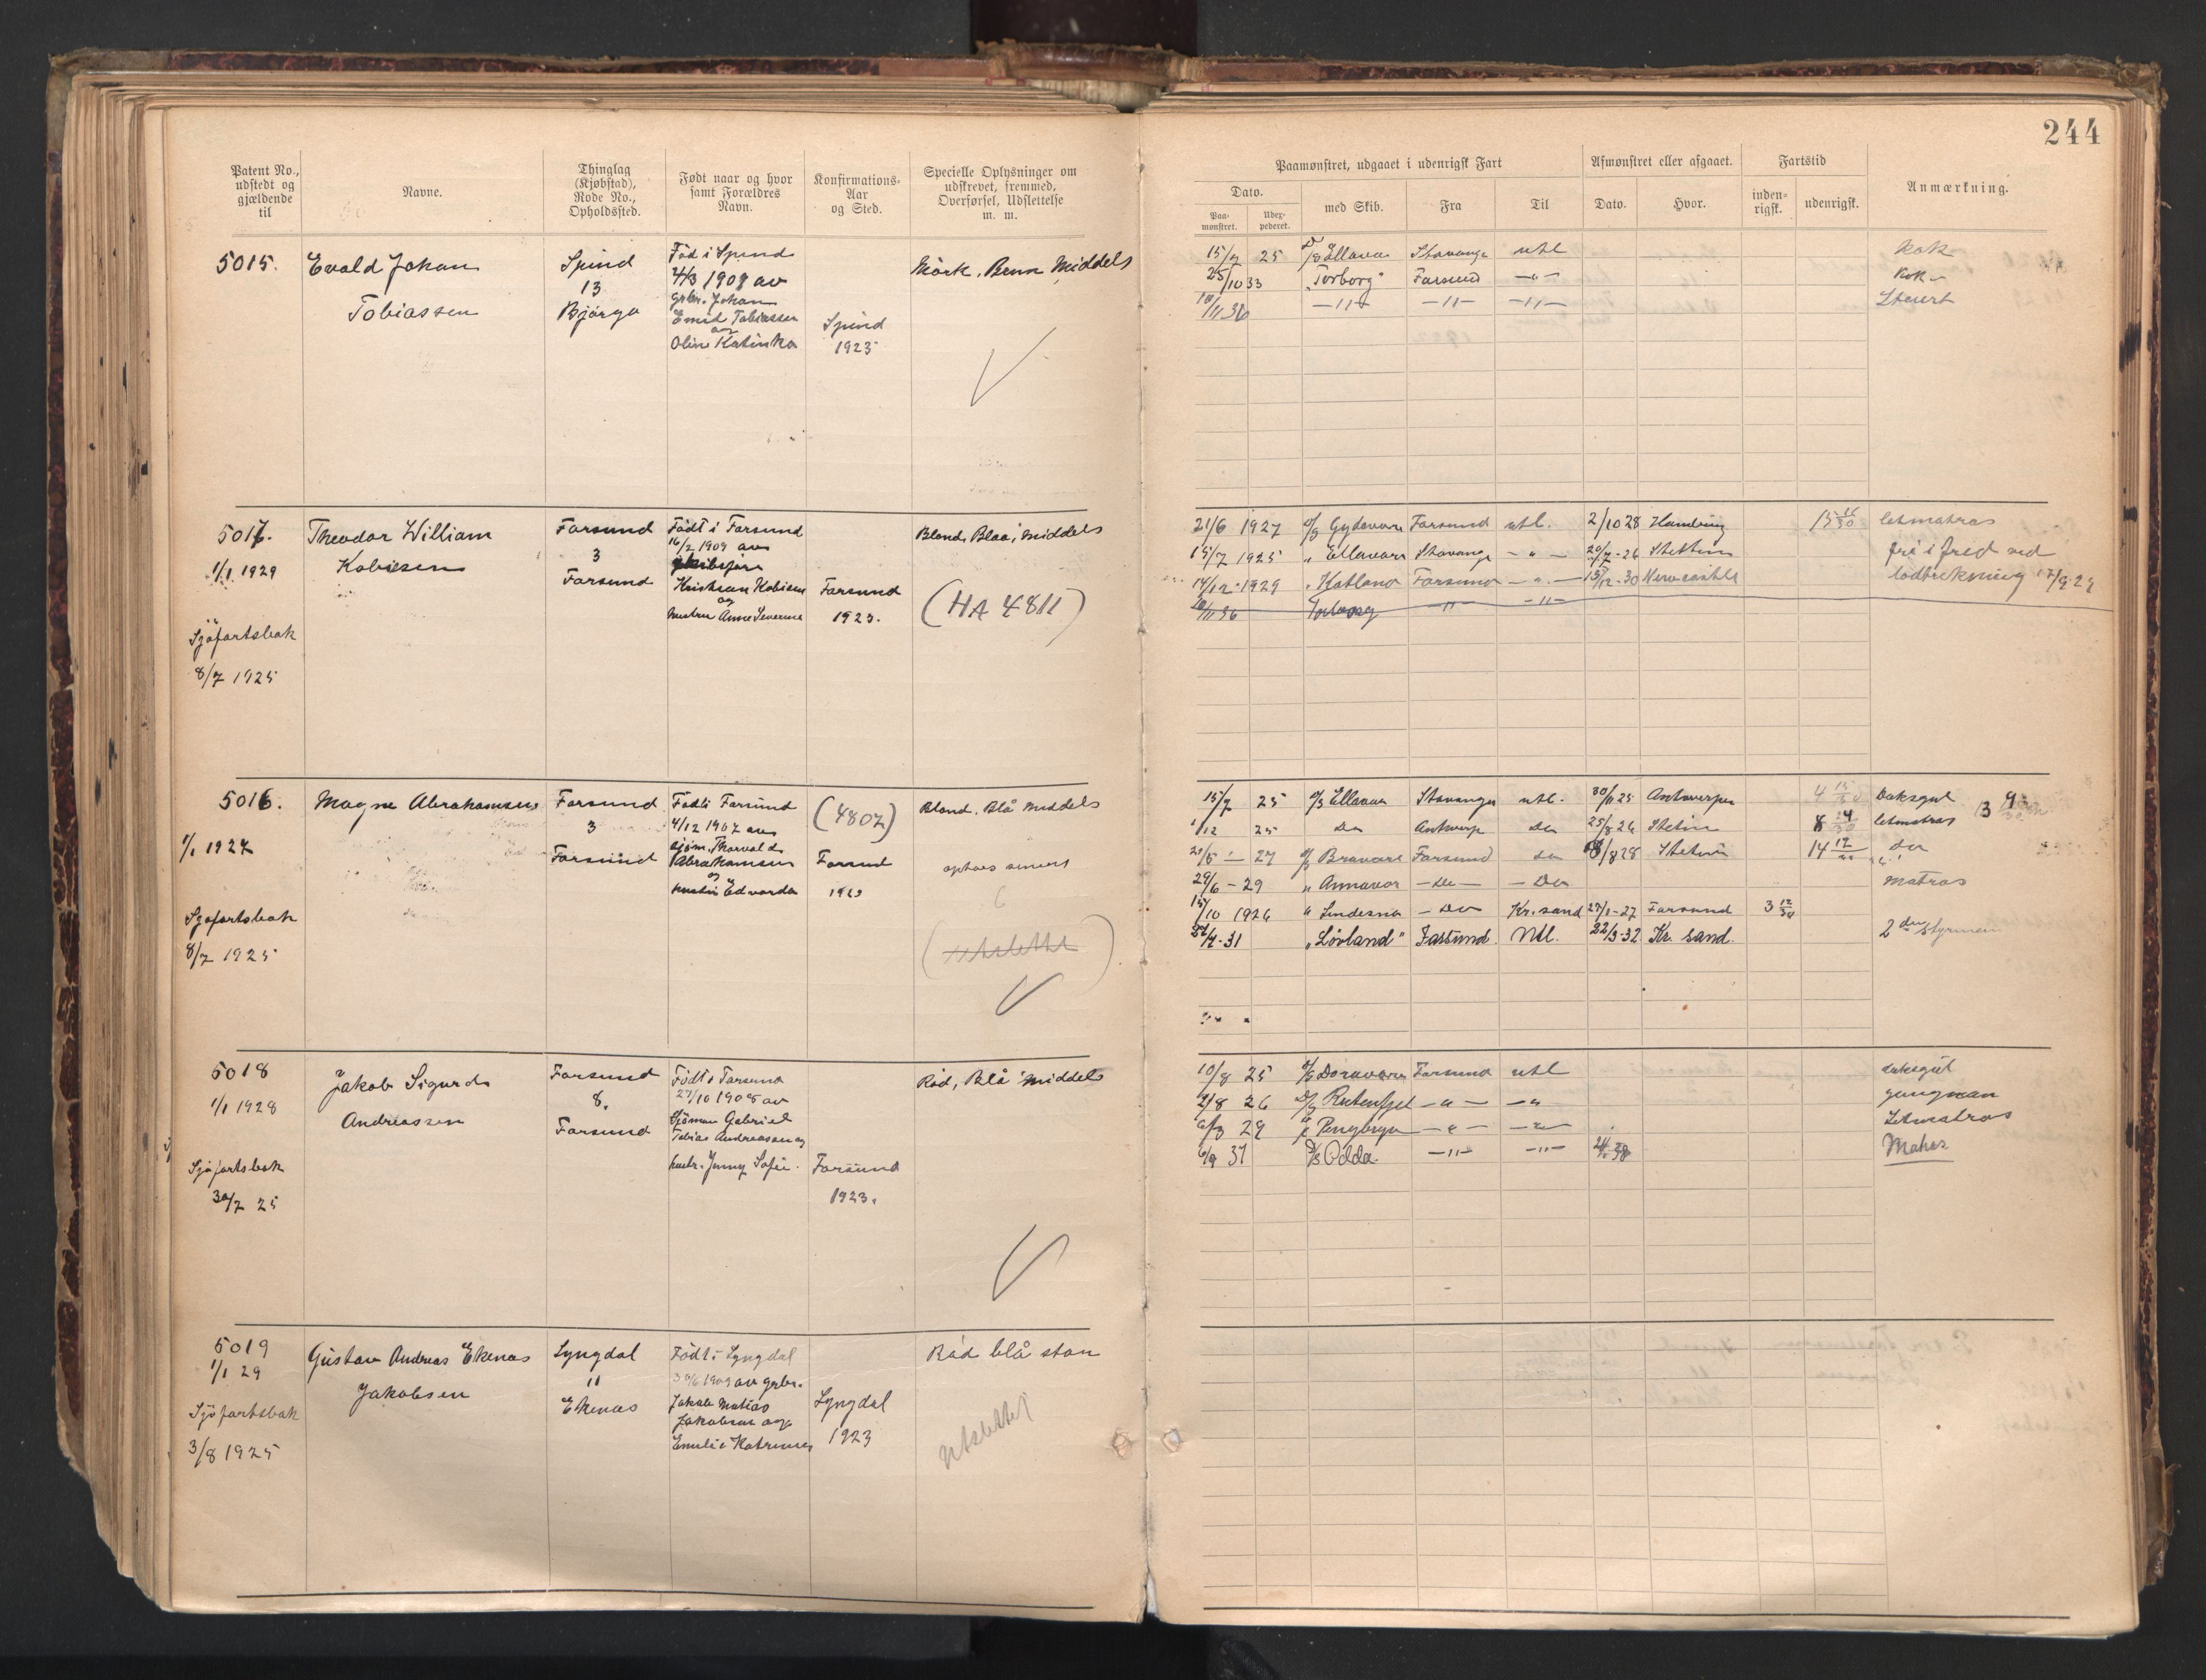 244
Patent No., udstedt og gjældende til
Navne.
Thinglag (Kjøbstad), Rode No., Opholdssted.
Født naar og hvor samt Forældres Navn.
Konfirmations-Aar og Sted.
Specielle Oplysninger om udskrevet, fremmed, Overførsel, Udslettelse m. m.
Paamønstret, udgaaet i udenrigsk Fart
Afmønstret eller afgaaet.
Fartstid
Anmærkning.
Dato.
med Skib.
Fra
Til
Dato.
Hvor.
inden-rigsk.
udenrigsk.
Paa-mønstret.
Udex-pederet.
5015.
Evald Johan
Tobiassen
Spind
13
Bjørga
Föd i Spind
1908 av
grbr. Johan
Emid Tobiassen
og
Oline Katinka
Spind
1923
Mörk, Brun Middels
15/7 25 D/S Ellavar Stavanger utl Kok
25/10 33 "Torborg" Farsund —"— Kok
10/11 36 —"— —"— —"— Stuert
5017.
1/1 1929
Sjöfartsbok
8/7 1925
Theodor William
Kobiesen
Farsund
3
Farsund
Födt i Farsund
16/2 1909 av
Kristian Kobiesen
og
hustru Anne Severine
Farsund
1923.
Blond, Blaa, middels
(HA 4811)
21/6 1927 D/S Gydavore Farsund utl. 2/10 28 Hamburg 15 16/30 letmatros
15/7 1925 " Ellavore Stavanger — " — 20/7-26 Stettin fri i fred ved
14/12-1929 "Katland Farsund — " — 13/12-30 Newcastle lodtrekning 17/9-29
10/11 36 Torborg —"— —"—
5016.
1/1 1927
Sjöfartsbok
8/7 1925
Magne Abrahamsen
Farsund
3
Farsund
Födt i Farsund
4/12 1907 av
sjöm. Thorvald
Abrahamsen
og
hustru Edvarda
(4807)
Farsund
1923
Blond, Blå Middels
(utslettet)
15/7 25 D/S Ellavar Stavanger utl. 30/11 25 Antwerpen 4 15/30 Daksgut
1/12 25 Do Antwerp Do 25/8 26 Stetin 8 24/30 letmatros
27 D/S Bravore Farsund do 8/8 28 Stetin 14 do
29/6 - 29 " Annavor — Do — — Do matros
10 1926 " Lindesnes — Do Kr.sand 27/1-27 Farsund 3 12/30
31 "Lövland" Farsund. Utl. 22/3-32 Kr. sand. 2den Styrmen
5018
1/1 1928
Sjöfartsbok
30/7 25
Jakob Sigurd
Andreassen
Farsund
8.
Farsund
Födt i Farsund
27/10 1908 av
Sjöman Gabriel
Tobias Andreassen og
hustr. Jenny Sofie.
Farsund
1923.
Röd, Blå Middels
10/8 25 D/S Doravore Farsund utl daksgut
21/8 26 D/S Rutenfjel — " — — " jungman
6/3 29 Pengbryn — " — — " — Letmatros
6/9 37 D/S Odda. —"— —"— Matros
5019
1/1 29
Sjöfartsbok
3/8 1925
Gustav Andreas Ekenas
Jakobsen
Lyngdal
11
Ekenas
Födt i Lyngdal
30/6 1909 av grbr.
Jakob Matias
Jakobsen og
Emilie Katrine
Lyngdal
1923
Röd blå stor
utslettet